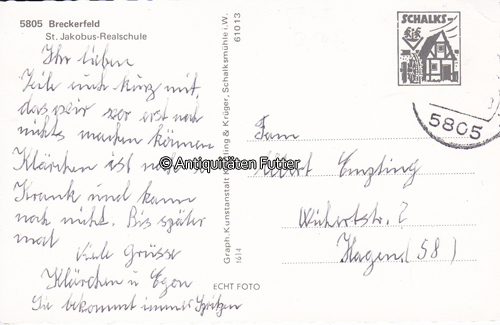 5805 Breckerfeld
St. Jakobus-Realschule
Ihr lieben
Teile euch kurz mit,
das wir vor erst noch
nichts machen können
Klärchen ist noch
Krank und kann
noch nicht. Bis später
mal
Viele Grüsse
Klärchen u Egon
Sie bekommt immer Spritzen
Graph. Kunstanstalt & Krüger, Schalksmühle i.W. 61013
1614
ECHT FOTO
© Antiquitäten Futter
SCHALKS-
5805
Fam
Albert Empting
Wichertstr. 2
Hagen (58)